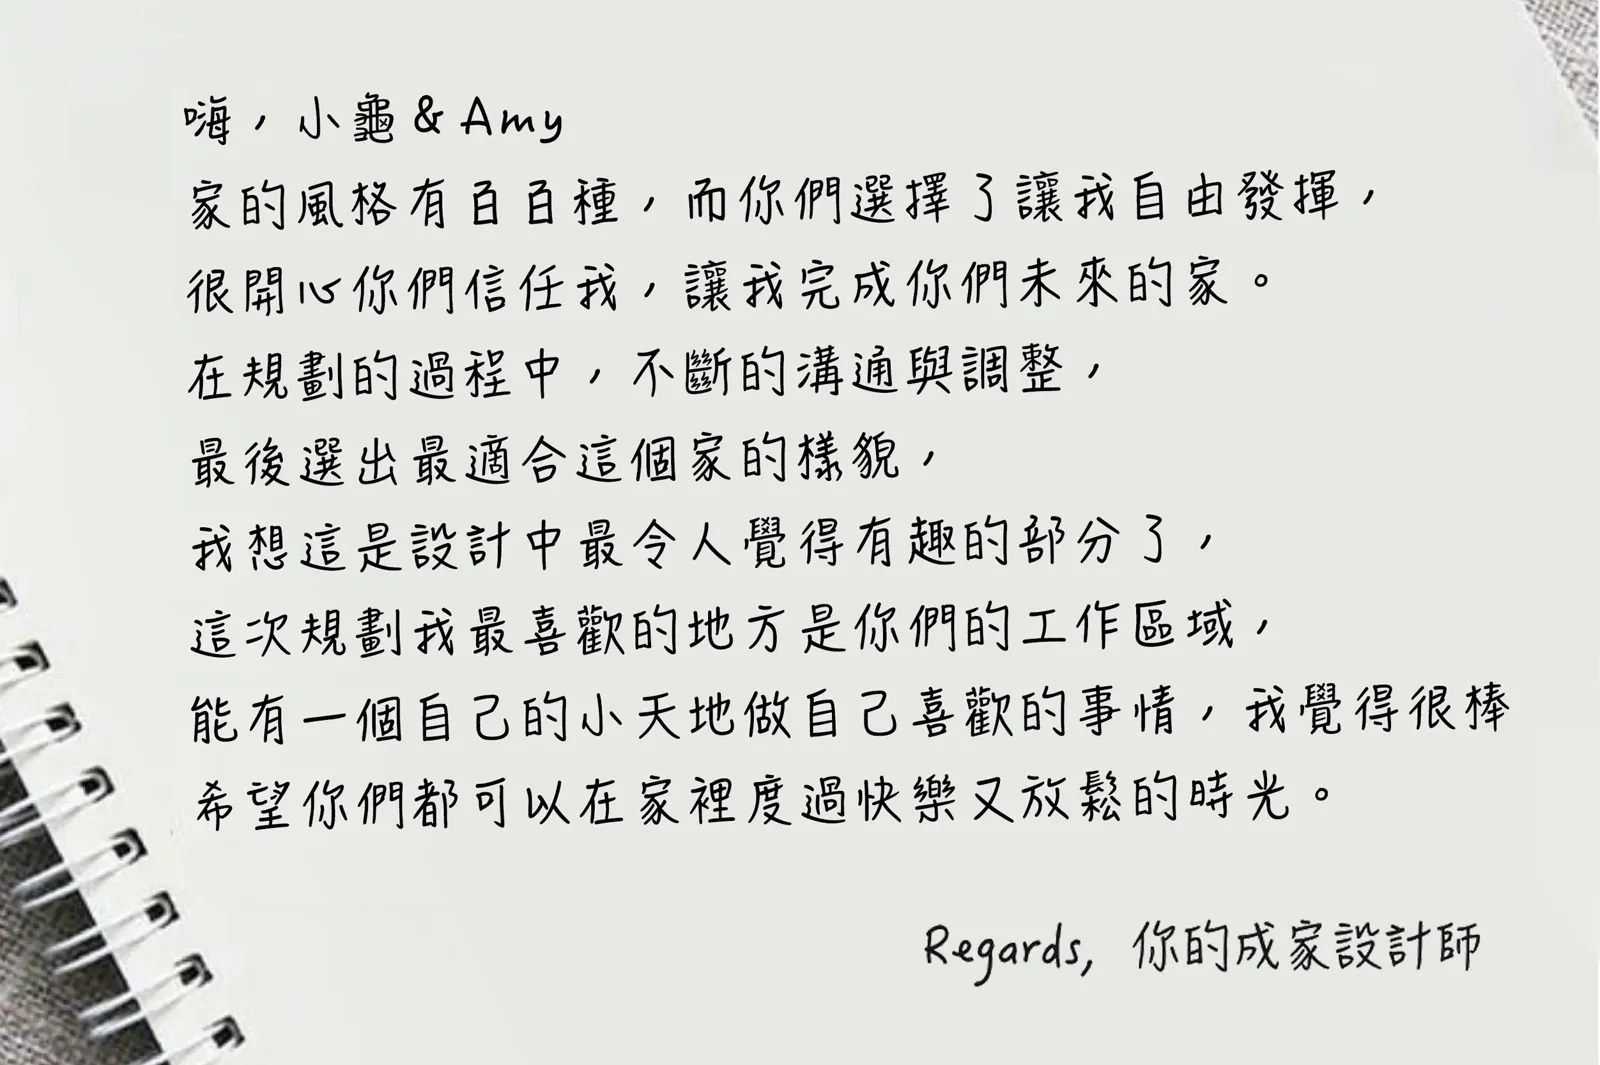 嗨，小龜 & Amy
家的風格有百百種，而你們選擇了讓我自由發揮，
很開心你們信任我，讓我完成你們未來的家。
在規劃的過程中，不斷的溝通與調整，
最後選出最適合這個家的樣貌，
我想這是設計中最令人覺得有趣的部分了，
這次規劃我最喜歡的地方是你們的工作區域，
能有一個自己的小天地做自己喜歡的事情，我覺得很棒
希望你們都可以在家裡度過快樂又放鬆的時光。
Regards, 你的成家設計師